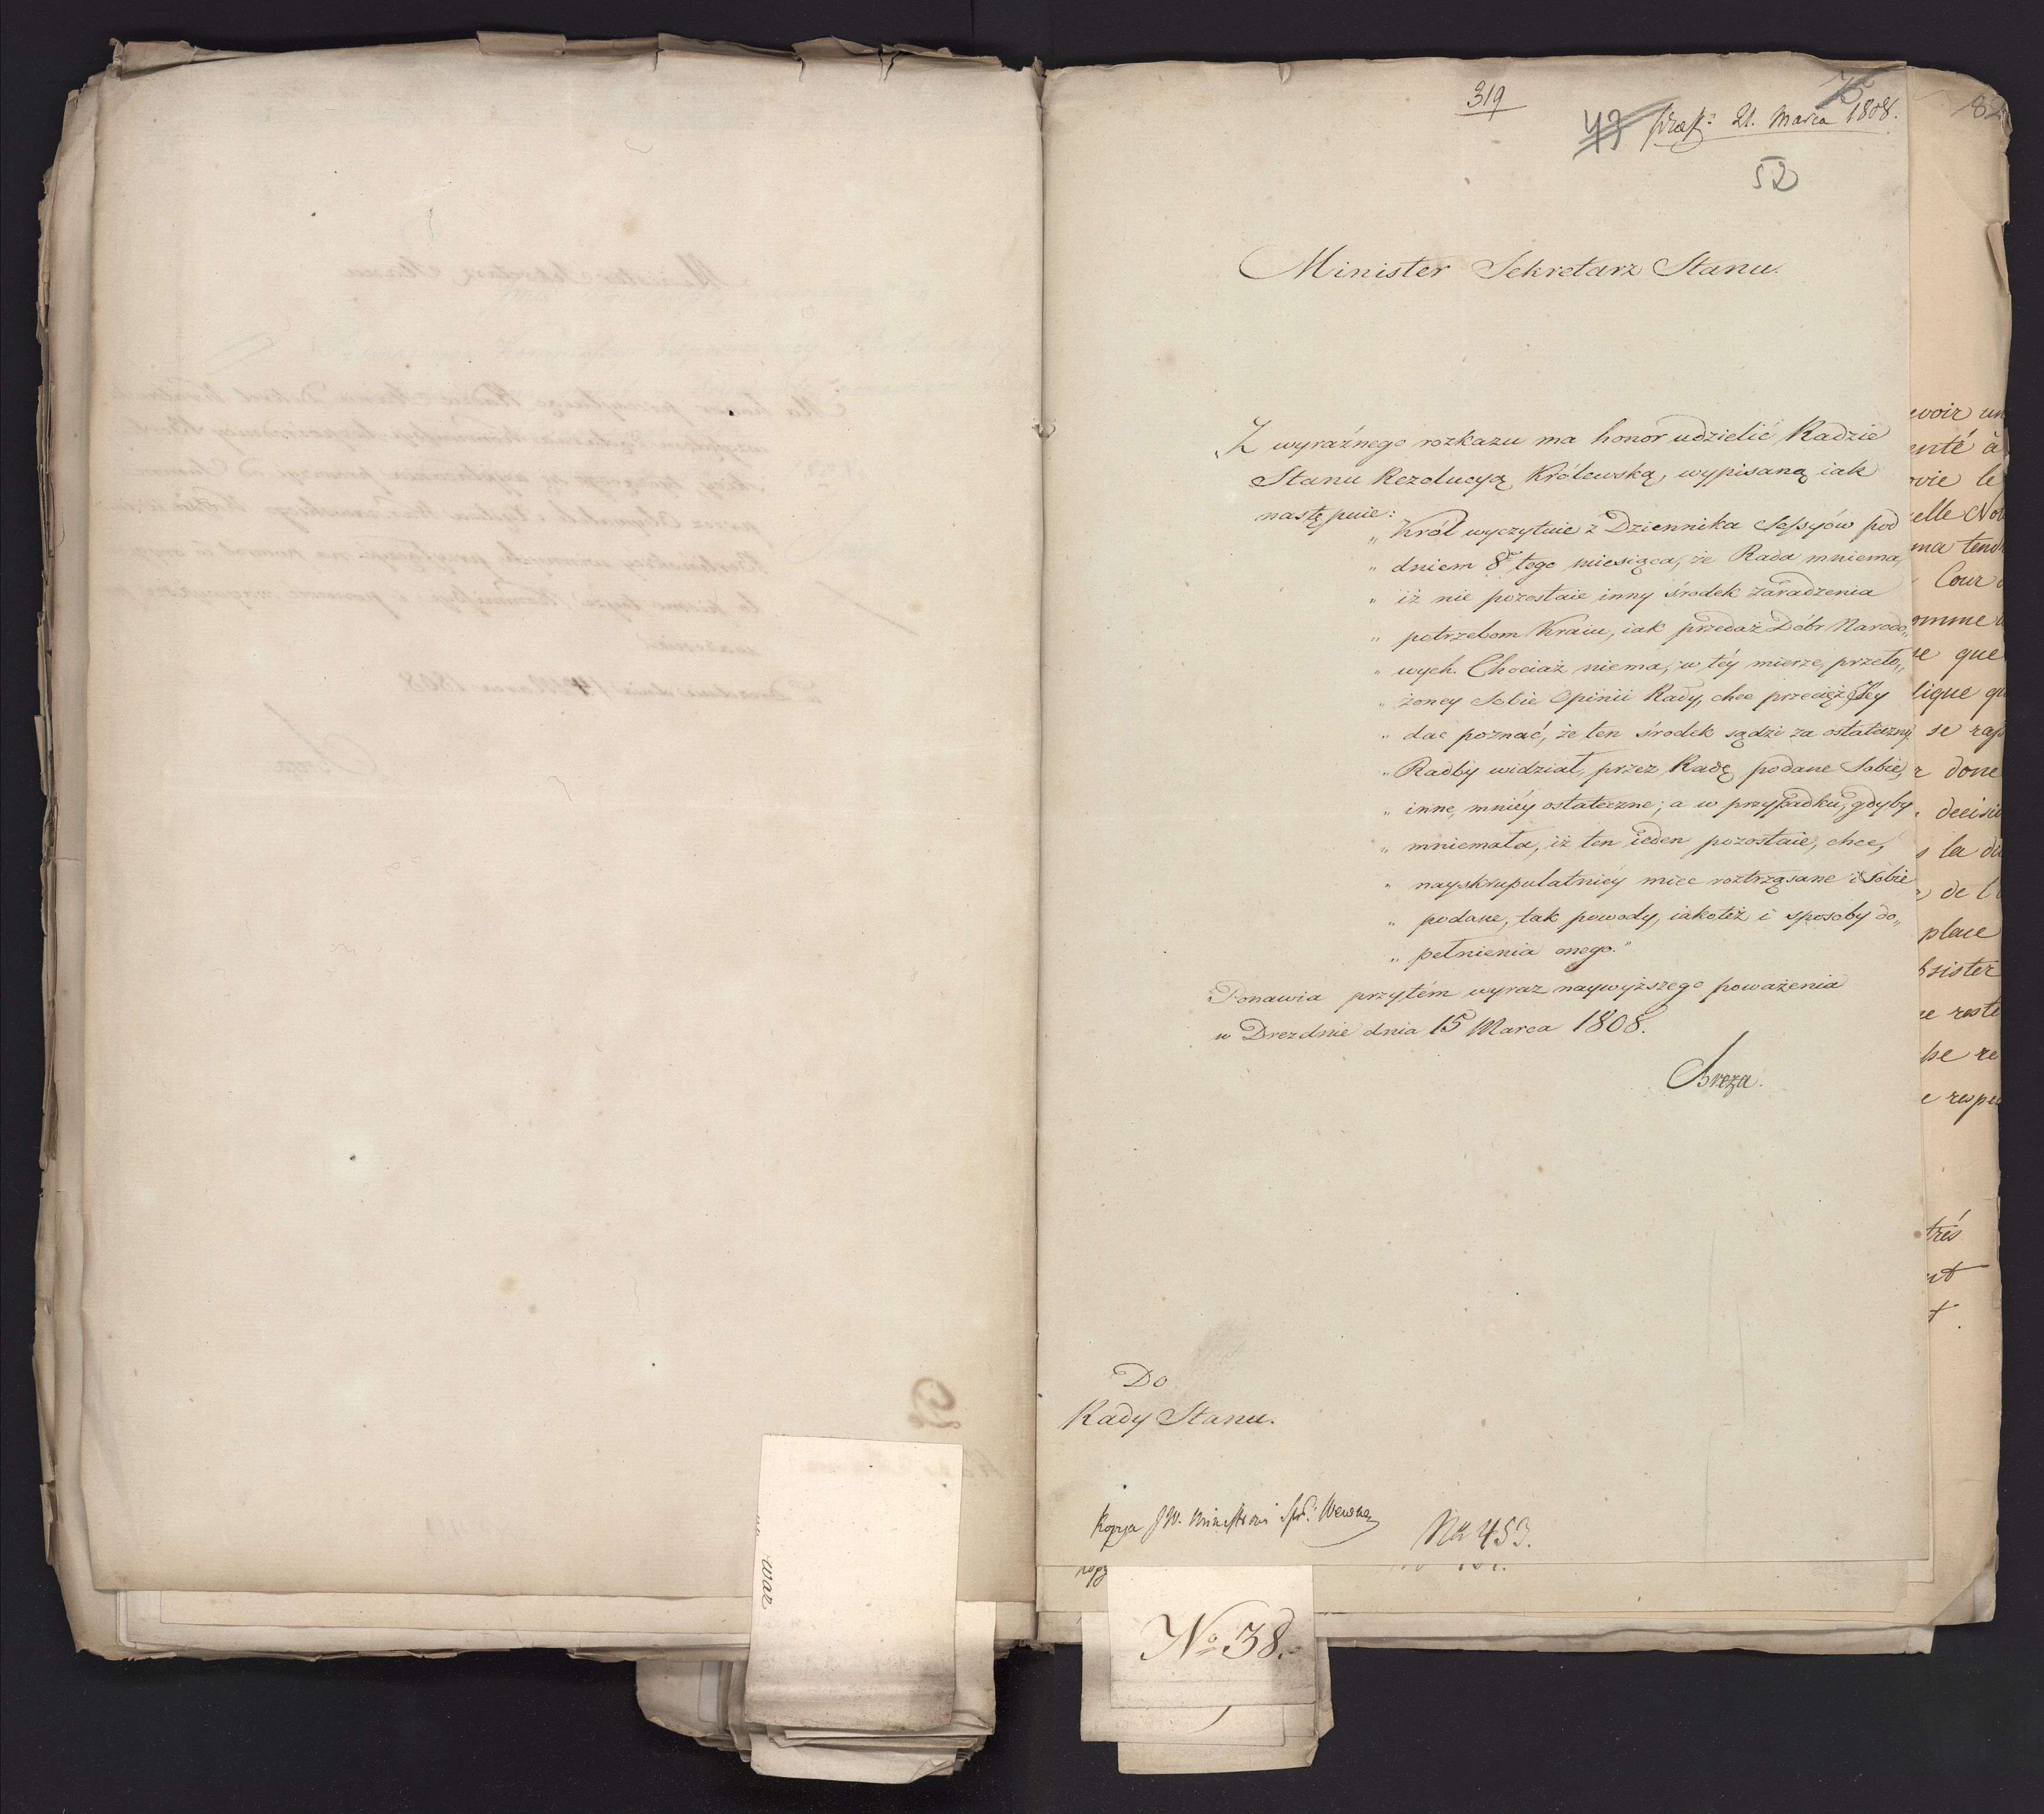 319
praes: 21. Marca 1808.
43
52
82
Minister Sekretarz Stanu.
Z wyraźnego rozkazu ma honor udzielić Radzie
Stanu Rezolucyą Królewską, wypisaną iak
następuie:
„Król wyczytuie z Dziennika Sessyów pod
„ dniem 8. tego miesiąca, że Rada mniema,
„ iż nie pozostaie inny środek zaradzenia
„ potrzebom Kraiu, iak przedaż Dóbr Narodo„
„ wych. Chociaż niema, w téy mierze, przeło„
„ żoney Sobie Opinii Rady, chce przecięż Jey
„ dać poznać, że ten środek sądzi za ostateczny.
„ Radby widział, przez Radę podane Sobie,
„ inne, mniéy ostateczne; a w przypadku, gdyby
„ mniemała, iż ten ieden pozostaie, chce,
„ nayskrupulatniéy mieć roztrząsane i Sobie
„ podane, tak powody, iakoteż i sposoby do„
„ pełnienia onego."
Ponawia przytém wyraz naywyższego poważenia
w Dreznie dnia 15 Marca 1808.
Breza.
Do
Rady Stanu.
Kopja JW. Ministrowi Spr: Wewnę
No 453.
No 38.